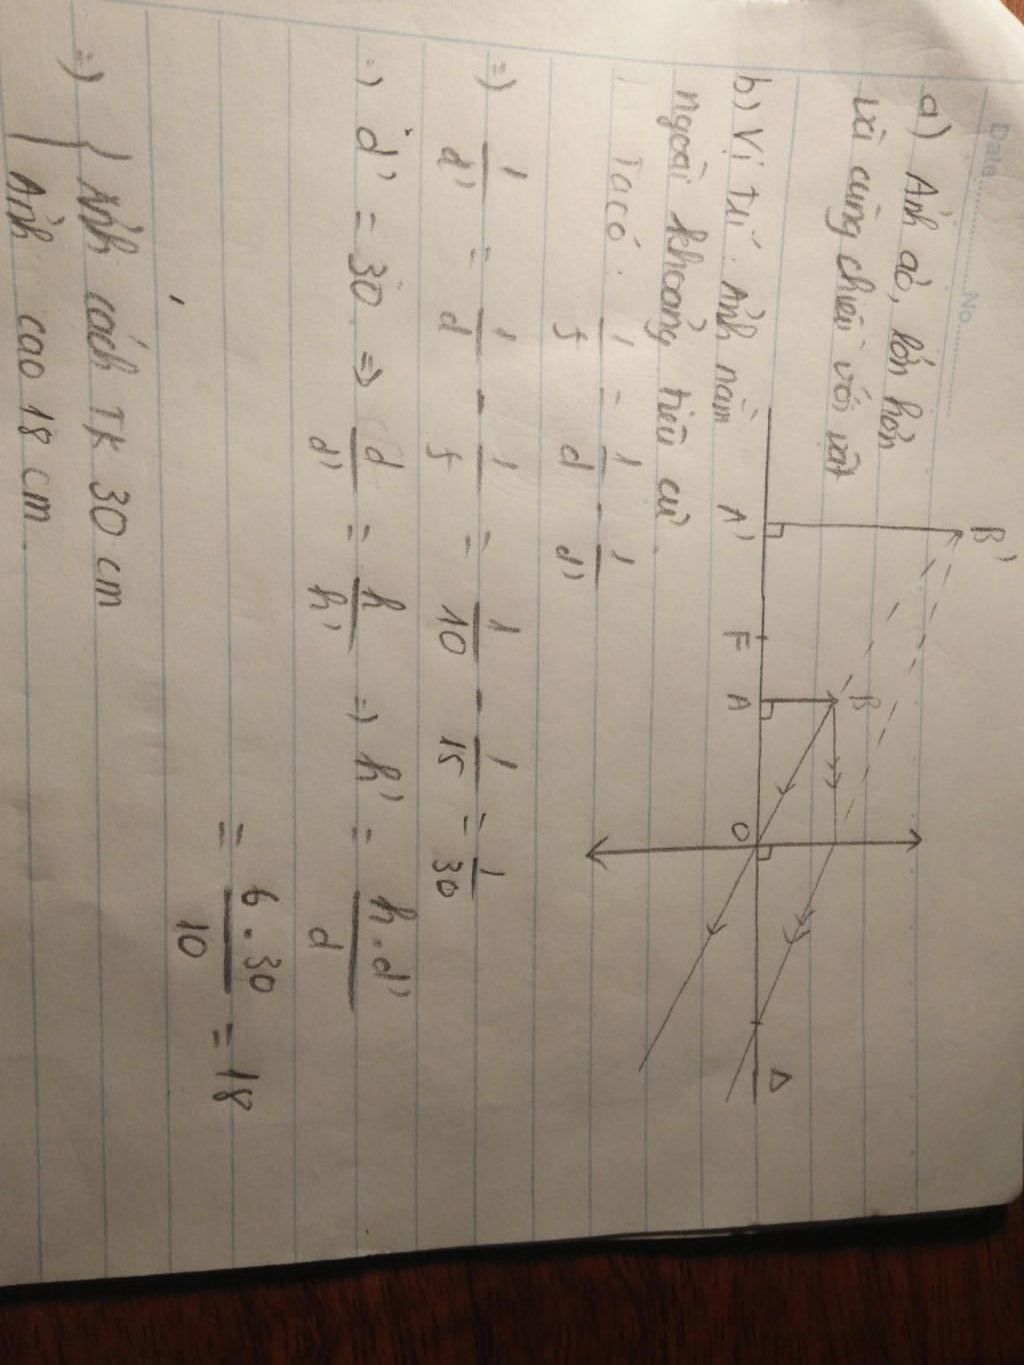 Date............No..............
a) Ảnh ảo, lớn hơn
và cùng chiều với vật
B'
B
A' F A O Δ
b) Vị trí: Ảnh nằm
ngoài khoảng tiêu cự.
Ta có: 1/f = 1/d - 1/d'
=) 1/d' = 1/d - 1/f = 1/10 - 1/15 = 1/30
=) d' = 30 => d/d' = h/h' => h' = h.d'/d
= 6.30/10 = 18
=) { Ảnh cách TK 30 cm
Ảnh cao 18 cm